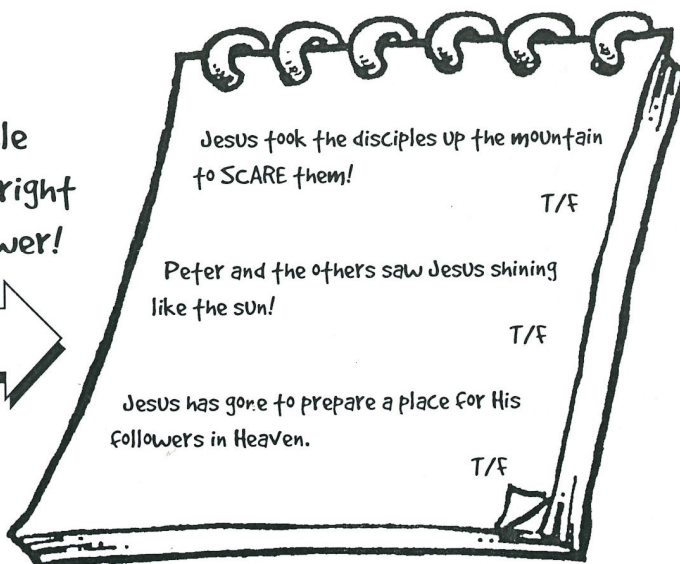 le
right
wer!
Jesus took the disciples up the mountain
to SCARE them!
T/F
Peter and the others saw Jesus shining
like the sun!
T/F
Jesus has gone to prepare a place for His
followers in Heaven.
T/F